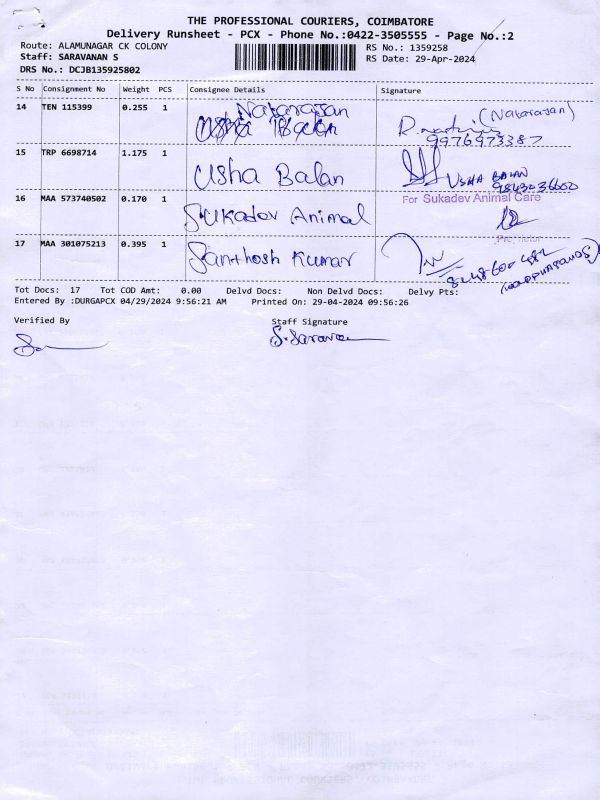 THE PROFESSIONAL COURIERS, COIMBATORE
Delivery Runsheet - PCX - Phone No.:0422-3505555 - Page No.:2
Route: ALAMUNAGAR CK COLONY
RS No.: 1359258
Staff: SARAVANAN S
RS Date: 29-Apr-2024
DRS No.: DCJB135925802
S No Consignment No Weight PCS Consignee Details Signature
14 TEN 115399 0.255 1 Natarajan (Natarajan)
Usha Balan
9976973387
15 TRP 6698714 1.175 1 Usha Balan USHA BALAN
9843036600
16 MAA 573740502 0.170 1 Sukadev Animal For Sukadev Animal Care
17 MAA 301075213 0.395 1 Santhosh Kumar
Tot Docs: 17 Tot COD Amt: 0.00 Delvd Docs: Non Delvd Docs: Delvy Pts:
Entered By :DURGAPCX 04/29/2024 9:56:21 AM Printed On: 29-04-2024 09:56:26
Verified By Staff Signature
S. Saravan